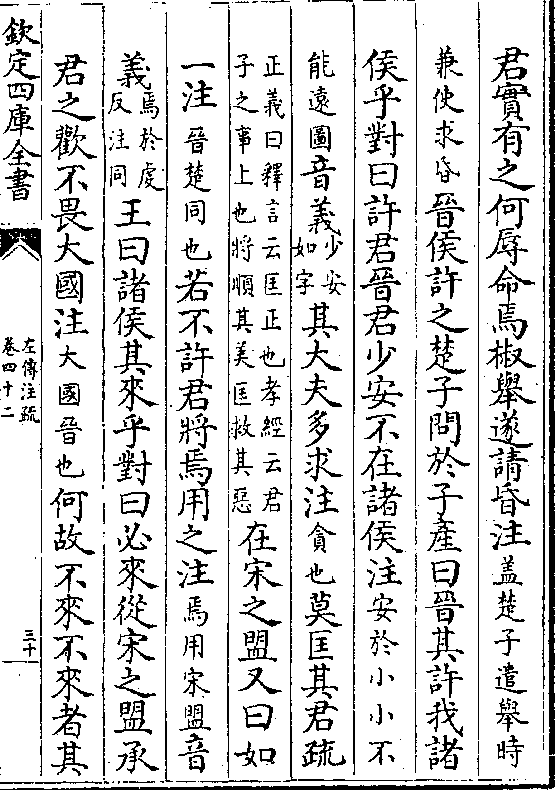 君實有之何辱命焉椒舉遂請昏注盖楚子遣舉時
兼使求昏晉侯許之楚子問於子產曰晉其許我諸
侯乎對曰許君晉君少安不在諸侯注安於小小不
能遠圖音義少安如字其大夫多求注貪也莫匡其君疏
正義曰釋言云匡正也孝經云君子之事上也將順其美匡救其惡在宋之盟又曰如
一注晉楚同也若不許君將焉用之注焉用宋盟音
義焉於虔反注同王曰諸侯其來乎對曰必來從宋之盟承
君之歡不畏大國注大國晉也何故不來不來者其
欽定四庫全書
左傳注疏
卷四十二
三十